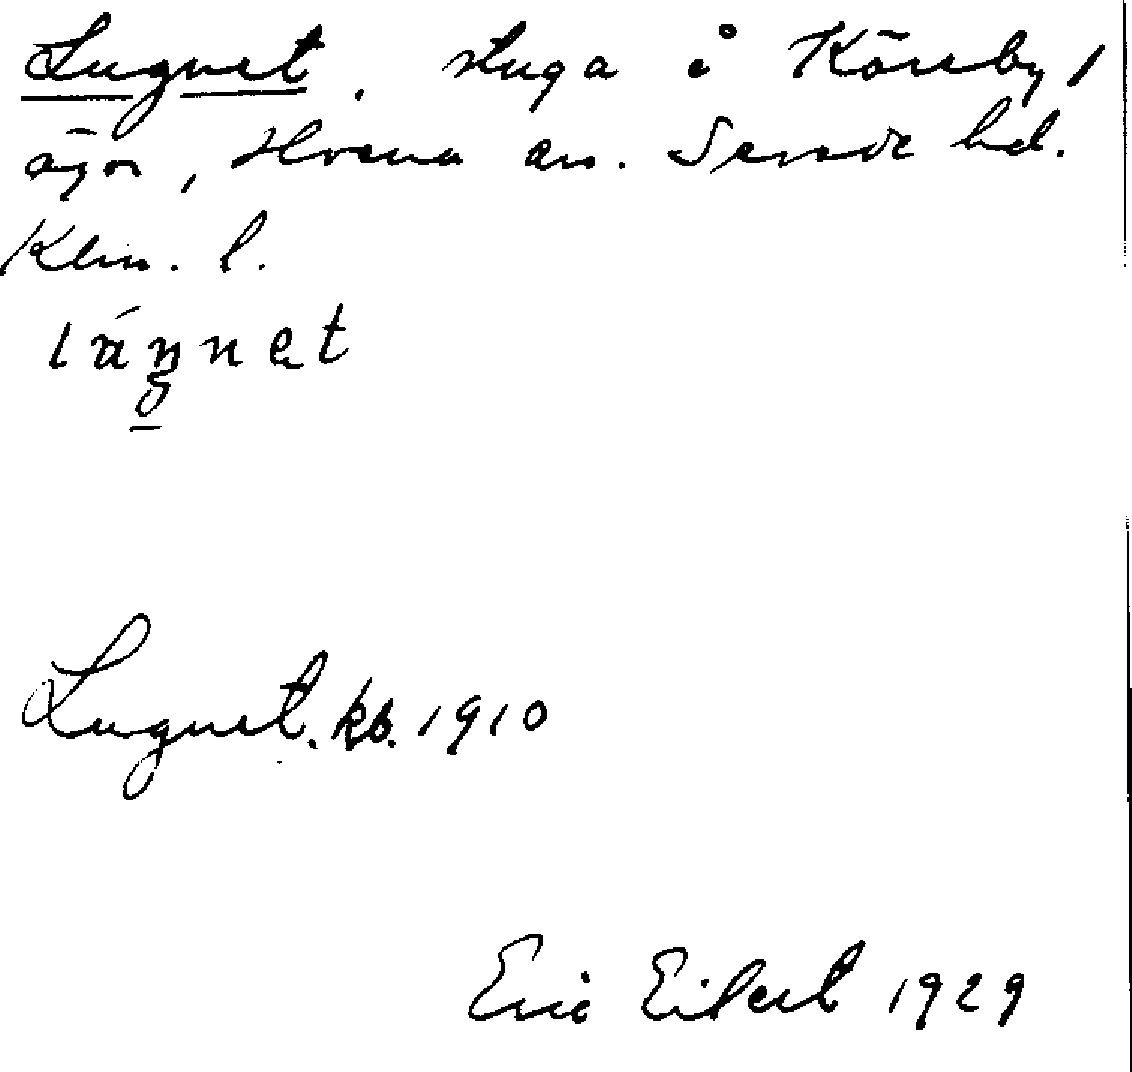 Lugnet, stuga å Köreby
ägor, Hvena sn. Sevede hd.
Klm. l.
Lugnet. kb. 1910
Eric Eilert 1929